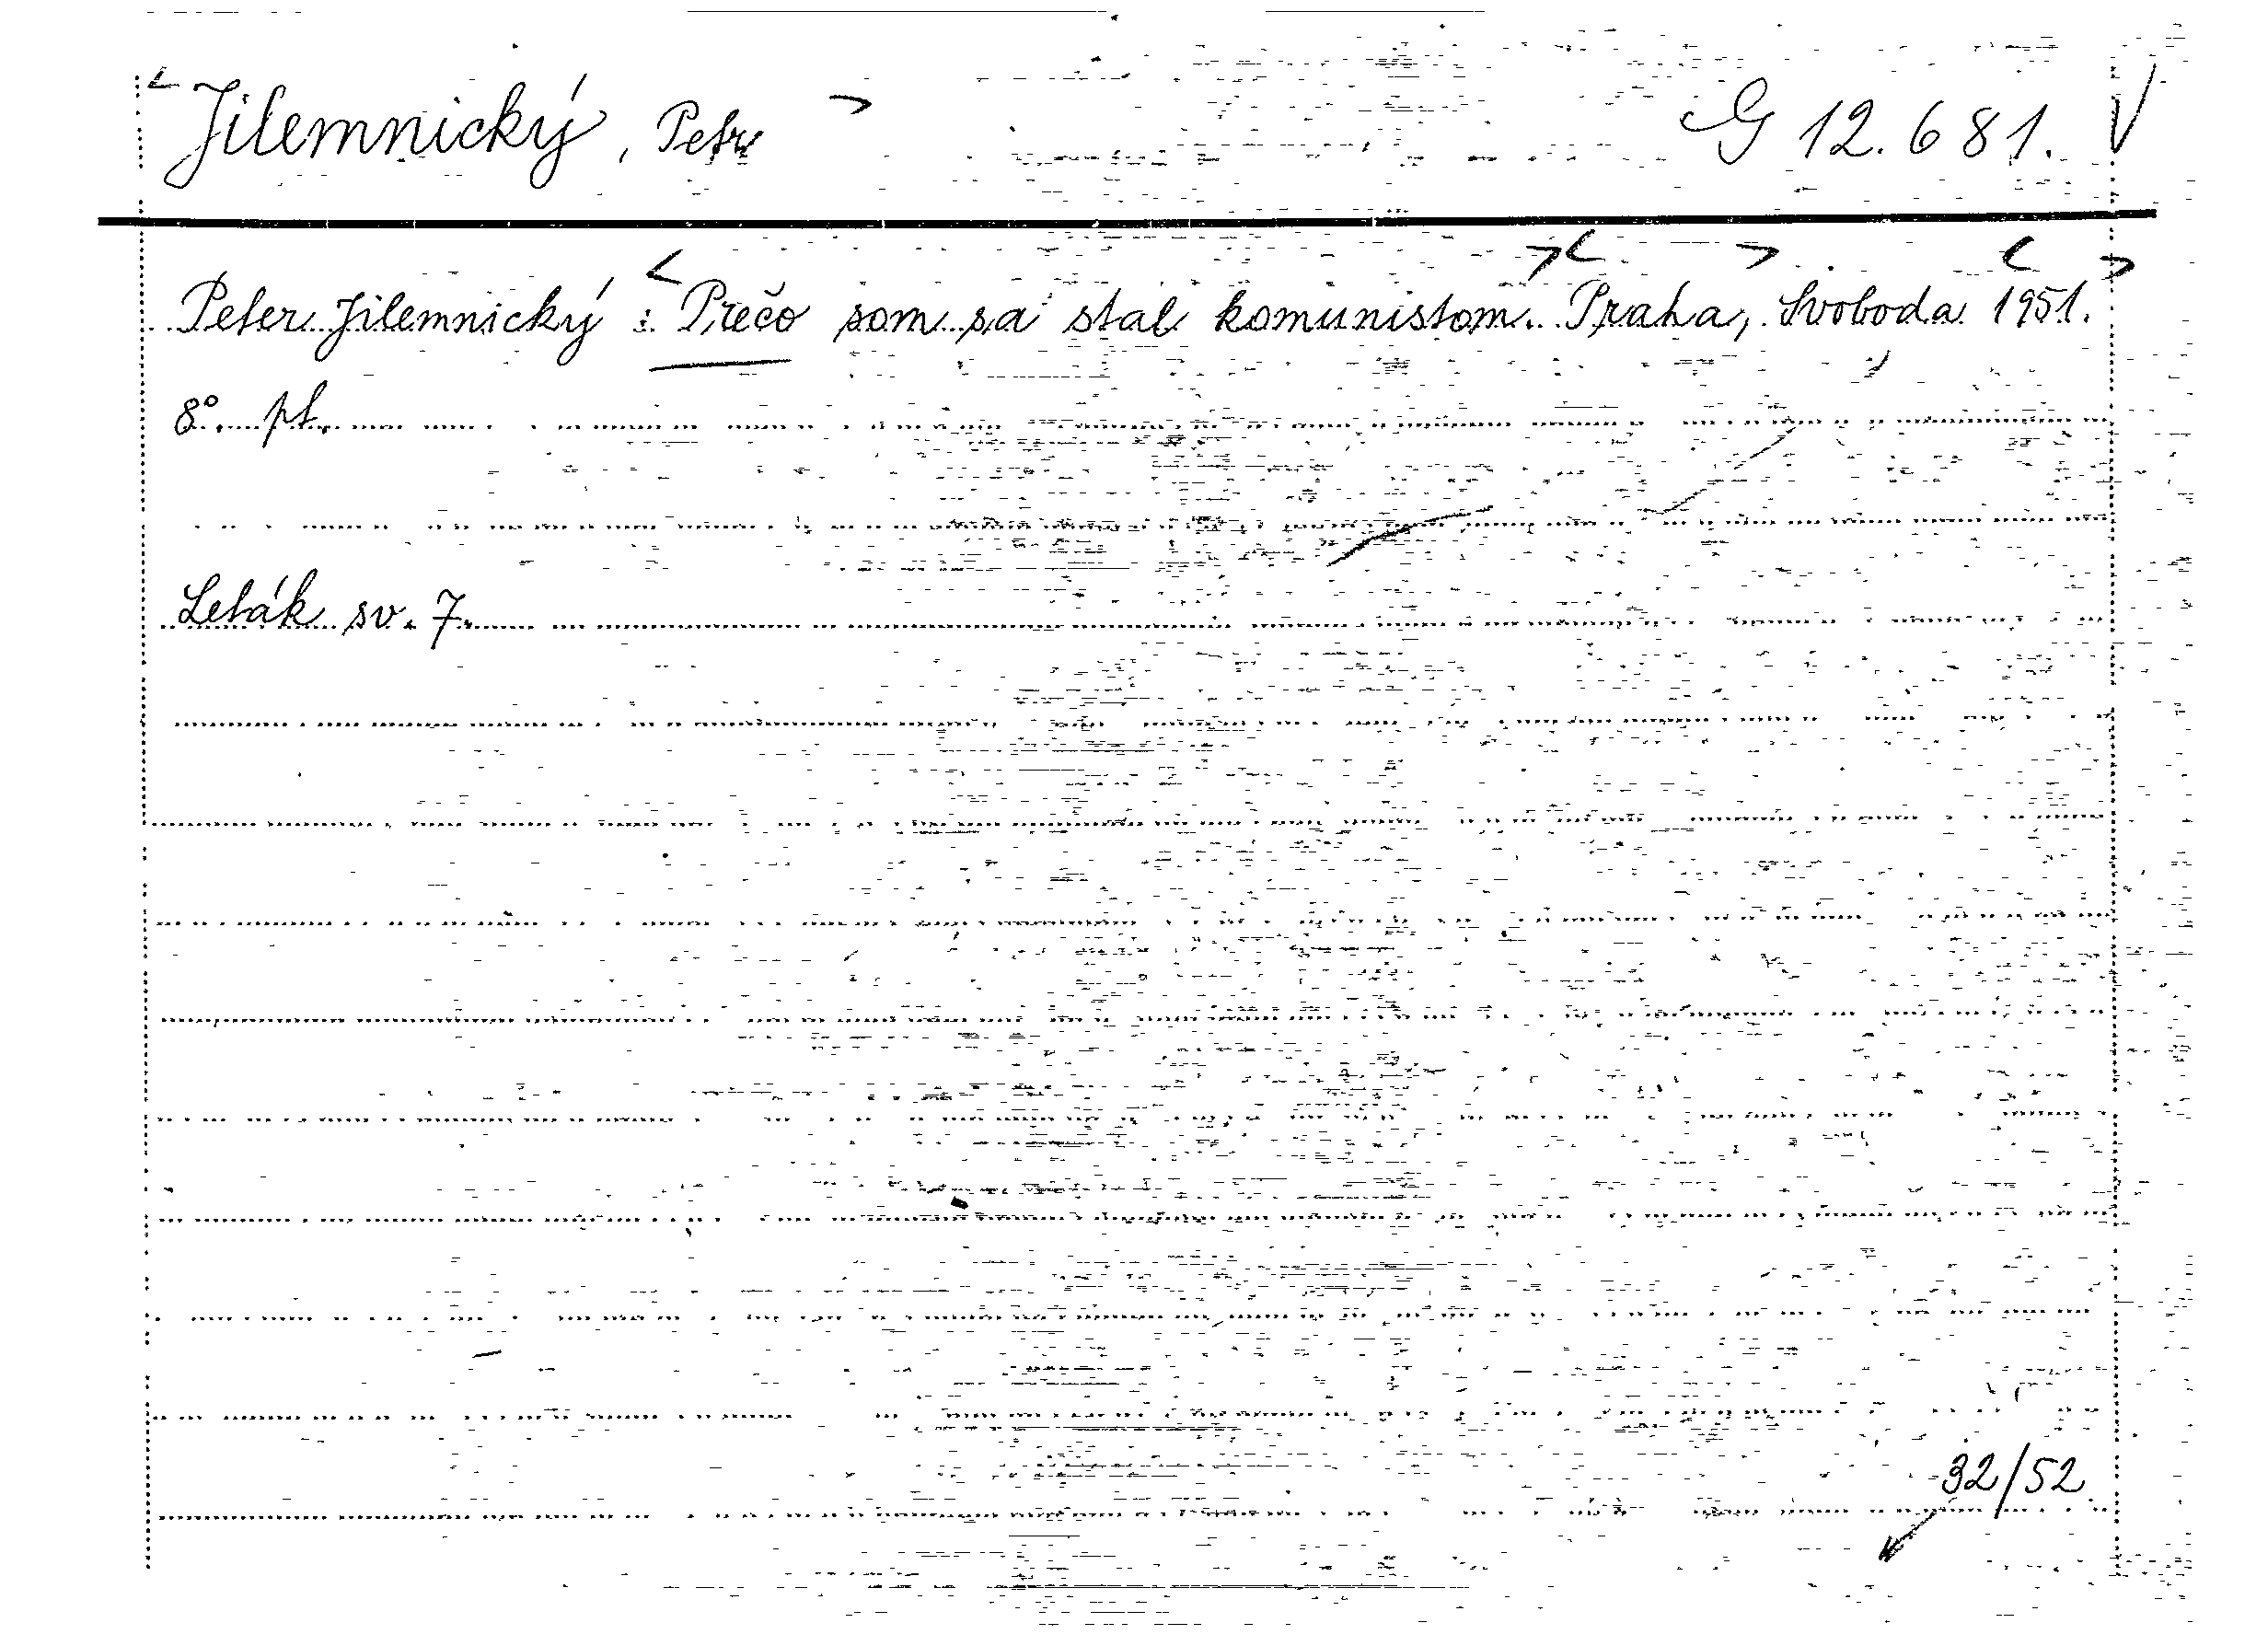 Jilemnický, Petr G 12.681. V
Peter Jilemnický : Prečo som sa stal komunistom. Praha, Svoboda 1951.
8°. pt.
Leták sv. 7.
32/52